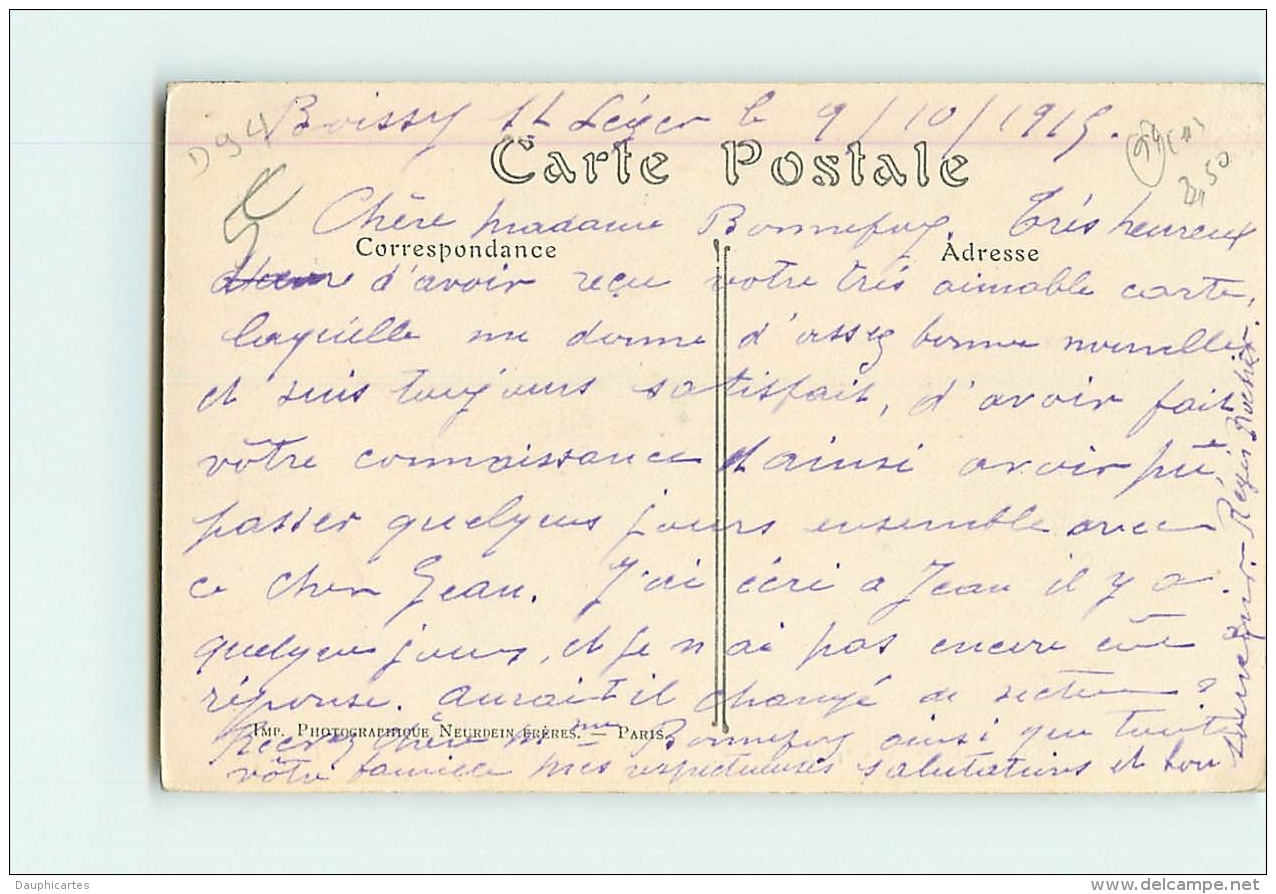 Boissy St Léger le 9/10/1915.
D94
Carte Postale
Chère Madame Bonnefoy. Très heureux
Correspondance
Adresse
d'avoir reçu votre très aimable carte,
laquelle me donne d'assez bonne nouvelles
et suis toujours satisfait, d'avoir fait
vôtre connaissance et ainsi avoir pû
passer quelques jours ensemble avec
ce cher Jean. J'ai écri a Jean il y a
quelques jours, et je n'ai pas encore eûe
réponse. Aurait il changé de secteur?
Imp. Photographique Neurdein frères. — Paris.
Recevez chère Mme Bonnefoy ainsi que toute
vôtre famille mes respectueuses salutations et bon
souvenir. Régis Rocher.
Dauphicartes
www.delcampe.net